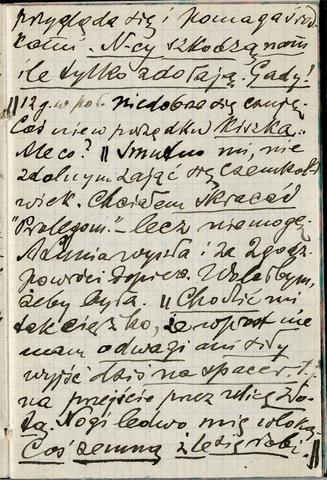 przygląda się i pomaga
. N-cy szkodzą nam
ile tylko zdołają. Gady!
|| 12 g. w poł. niedobrze się czuję.
Coś nie w porządku kiszka.
Ale co? || Smutno mi, nie
zdolnym zająć się czemkol-
wiek. Chciałem skracać
"Prolegom." – lecz nie mogę.
wyszła i za 2 godz.
powróci dopiero. Wolałbym,
żeby była. || Chodzić mi
tak ciężko, że wprost nie
mam odwagi ani siły
wyjść dziś na spacer, t.j.
na przejście przez ulicę Zło-
tą. Nogi ledwo mię wloką.
Coś zemną źle się robi. ||